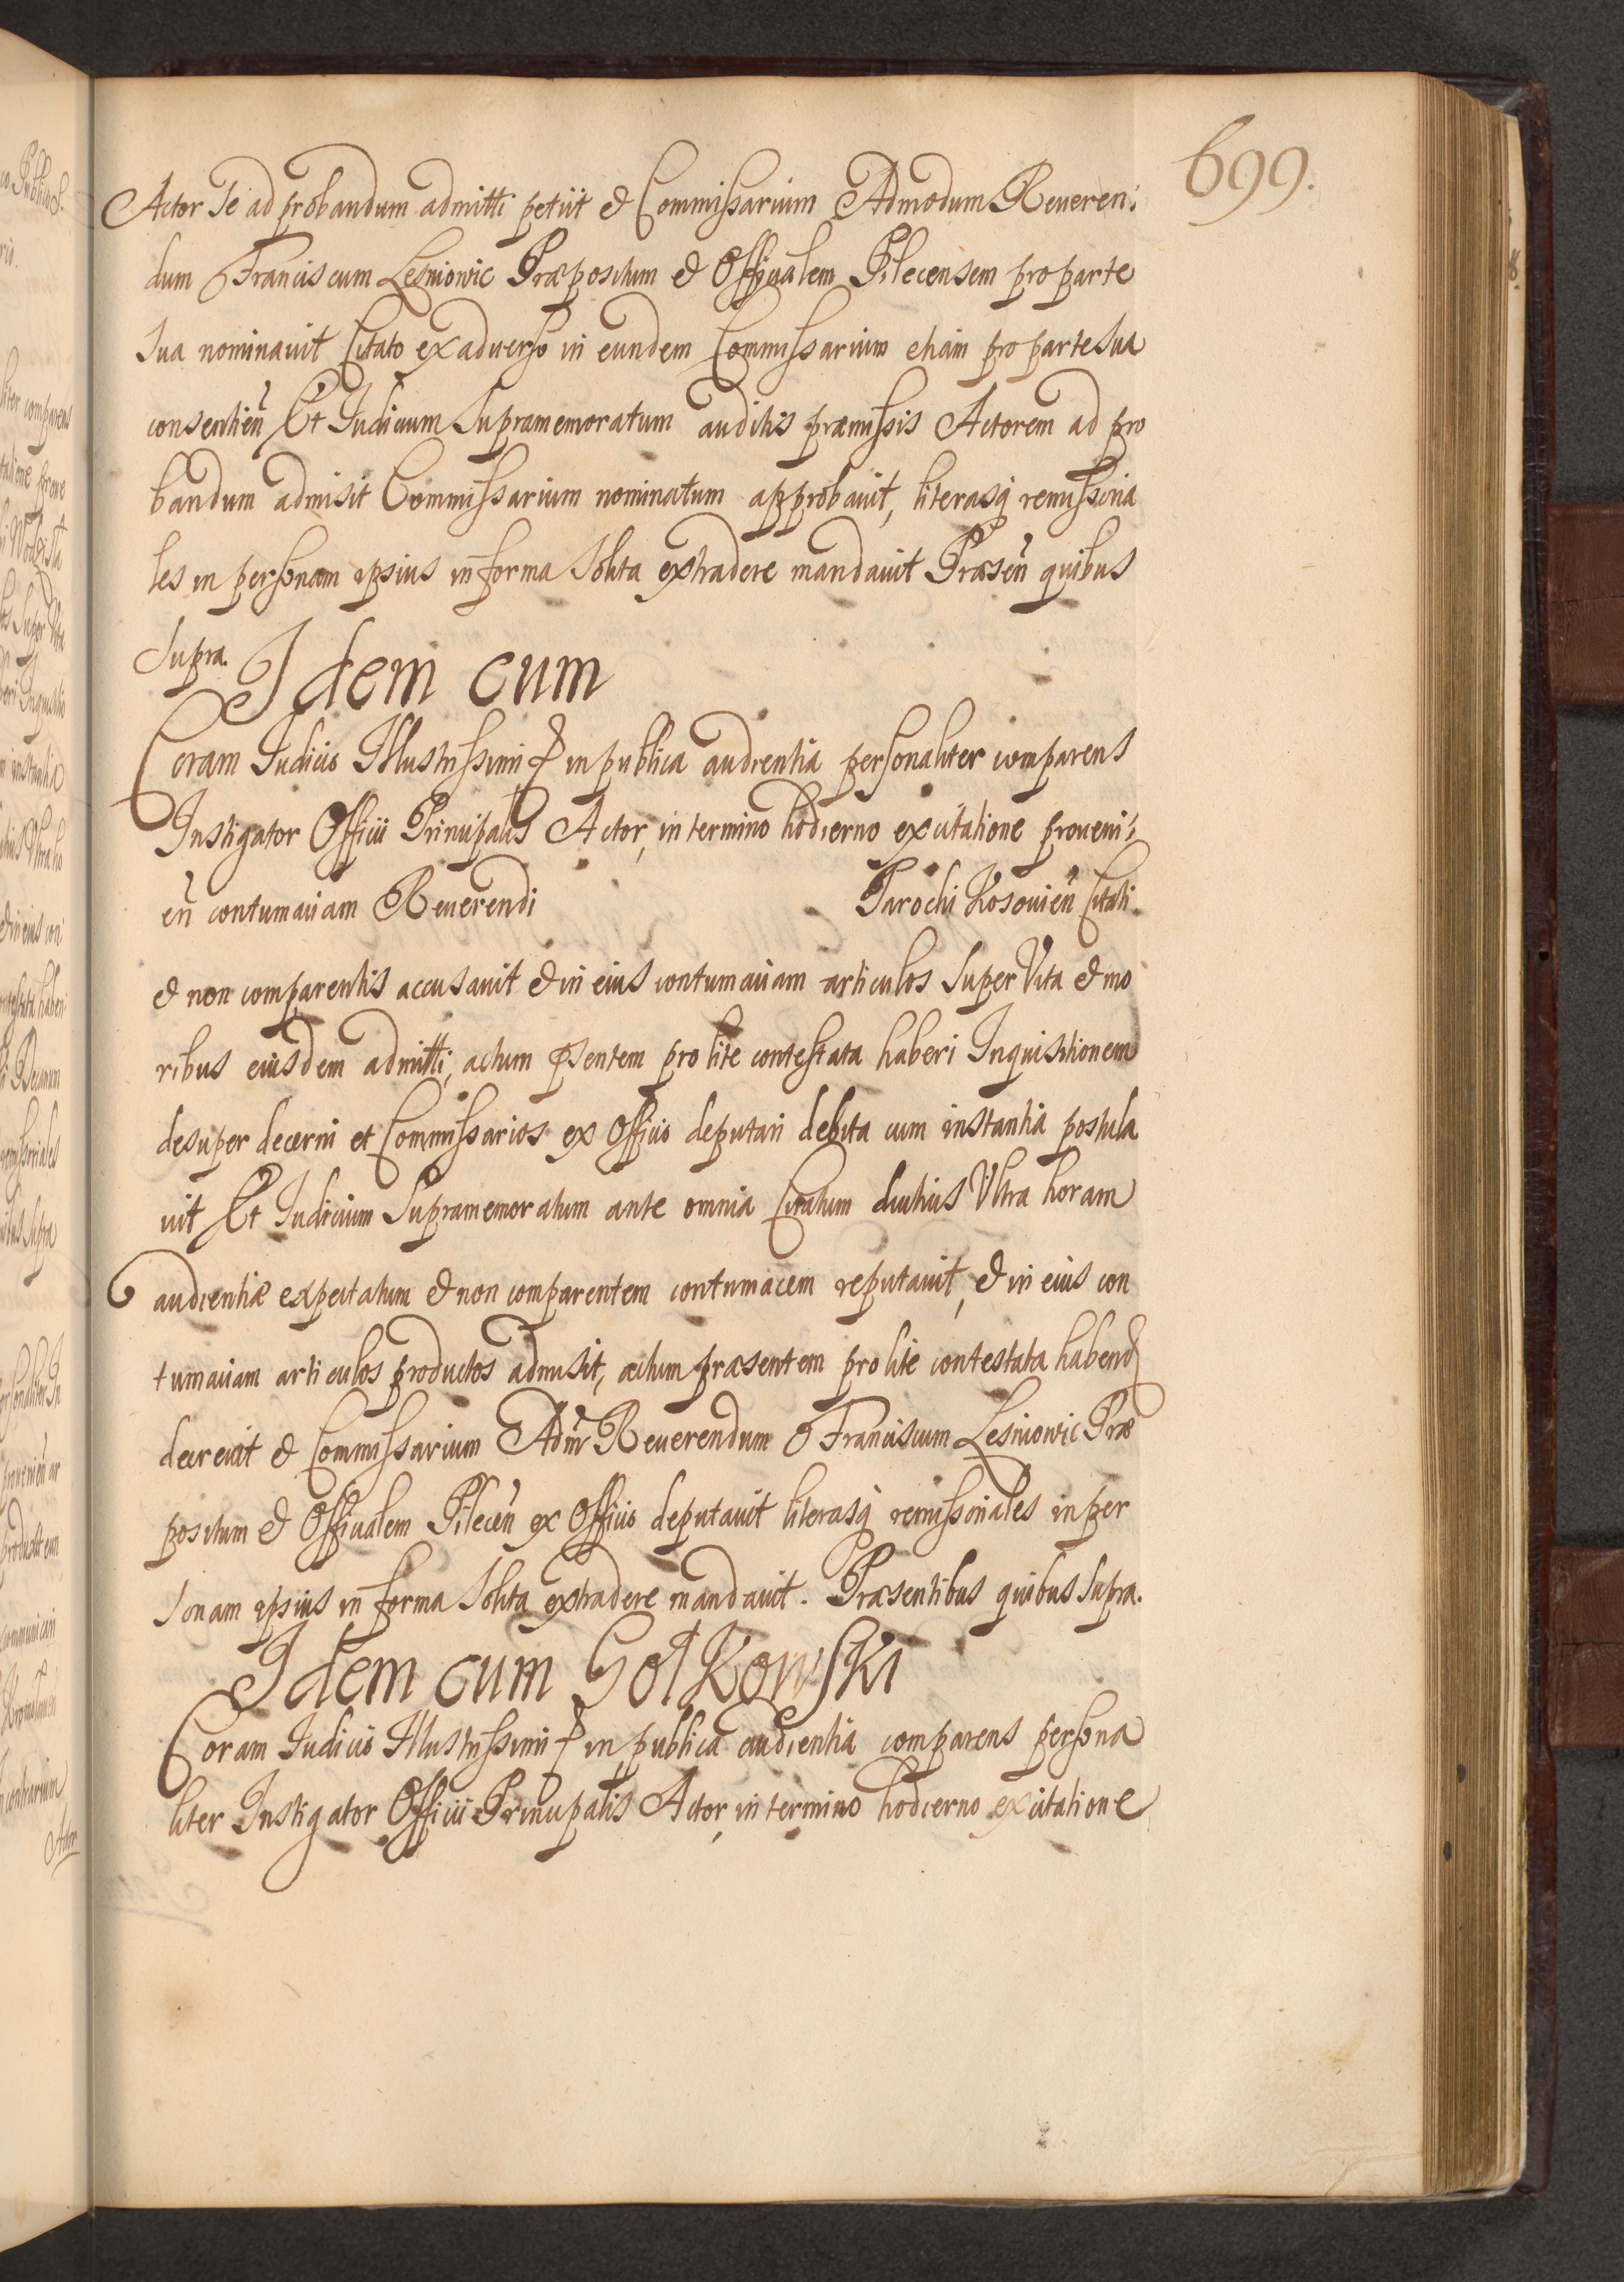 699.
Actor Se ad probandum admitti petiit et Commissarium Admodum Reveren:
dum Franciscum Lesniowic Præpositum et Officialem Pilecensem pro parte
Sua nominavit Citato ex adverso in eundem Commissarium etiam pro parte Sua
consentien̄ Et Iudicium Supramemoratum auditis præmissis Actorem ad pro
bandum admisit Commissarium nominatum approbavit, literasq remissoria
les in personam ipsius in forma Solita extradere mandavit Præsen̄ quibus
Supra.
Idem cum
Coram Iudicio Illustrissimi & in publica audientia personaliter comparens
Instigator Officii Principalis Actor, in termino hodierno ex citatione proveni:
en̄ contumaciam Reverendi Parochi Kosovien̄ Citati
et non comparentis accusavit et in eius contumaciam articulos Super Vita et mo
ribus eiusdem admitti, actum pſentem pro lite contestata haberi Inquisitionem
desuper decerni et Commissarios ex Officio deputari debita cum instantia postula
vit Et Iudicium Supramemoratum ante omnia Citatum diutius Ultra horam
audientiæ expectatum et non comparentem contumacem reputavit, et in eius con
tumaciam articulos productos admisit, actum præsentem pro lite contestata habend
decrevit et Commissarium Adm̄ Reverendum Franciscum Lesniowic Præ
positum et Officialem Pilecen̄ ex Officio deputavit literasq remissoriales in per
sonam ipsius in forma Solita extradere mandavit. Præsentibus quibus Supra.
Idem cum Golkowski
Coram Iudicio Illustrissimi & in publica audientia comparens persona
liter Instigator Officii Principalis Actor, in termino hodierno ex citatione